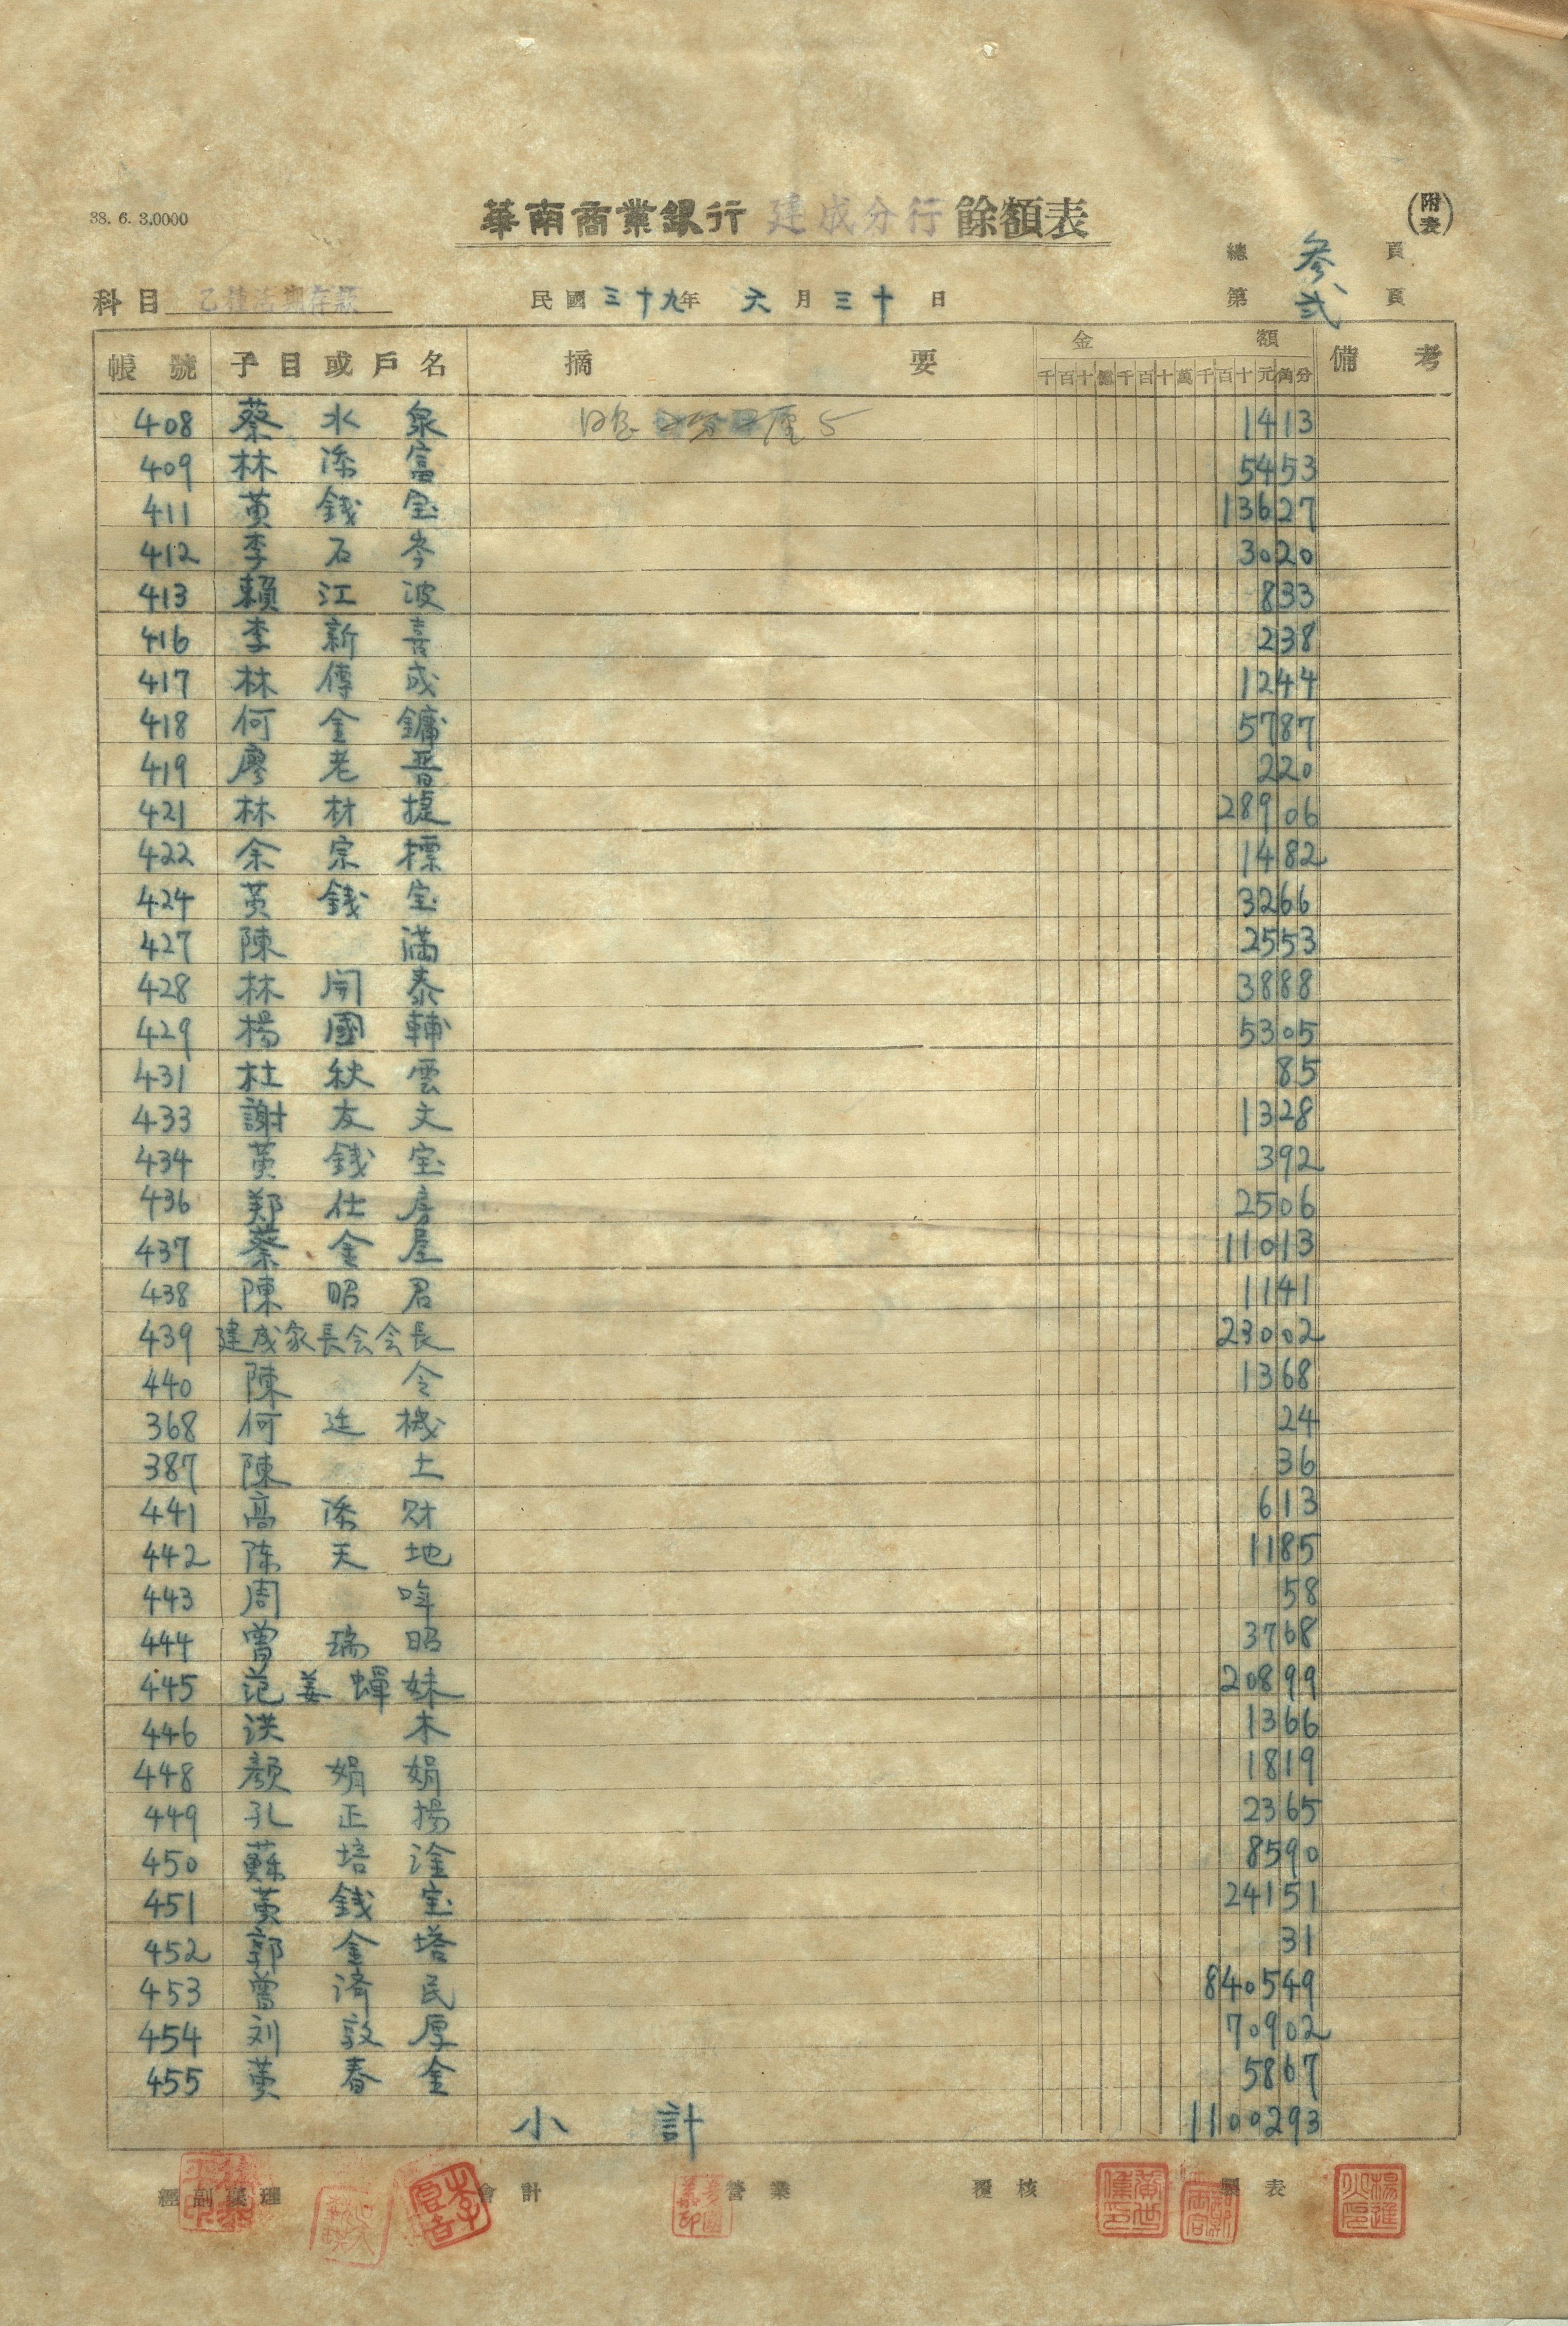 38. 6. 3.0000
華南商業銀行 建成分行 餘額表
(附表)
總 參 頁
科目 乙種活期存款 民國三十九年 六月三十日 第 弍 頁
帳號 子目或戶名 摘要 金額 備考
千百十億千百十萬千百十元角分
408 蔡水泉 1413
409 林添富 5453
411 黃錢宝 13627
412 李石岑 3020
413 賴江波 833
416 李新喜 238
417 林傳成 1244
418 何金鏞 5787
419 廖老晋 220
421 林材捷 28906
422 余宗標 1482
424 黃錢宝 3266
427 陳满 2553
428 林開泰 3888
429 楊國輔 5305
431 杜秋雲 85
433 謝友文 1328
434 黃錢宝 392
436 郑仕房 2506
437 蔡金屋 11013
438 陳昭君 1141
439 建成家長会会長 23002
440 陳令 1368
368 何廷機 24
387 陳土 36
441 高添财 613
442 陈天地 1185
443 周 58
444 曾瑞昭 3768
445 范姜蟬妹 20899
446 洪木 1366
448 顏娟娟 1819
449 孔正揚 2365
450 蘇培淦 8590
451 黃錢宝 24151
452 郭金塔 31
453 曾济民 840549
454 刘敦厚 70902
455 黃春金 5867
小計 1100293
經副襄理 會計 營業 覆核 製表